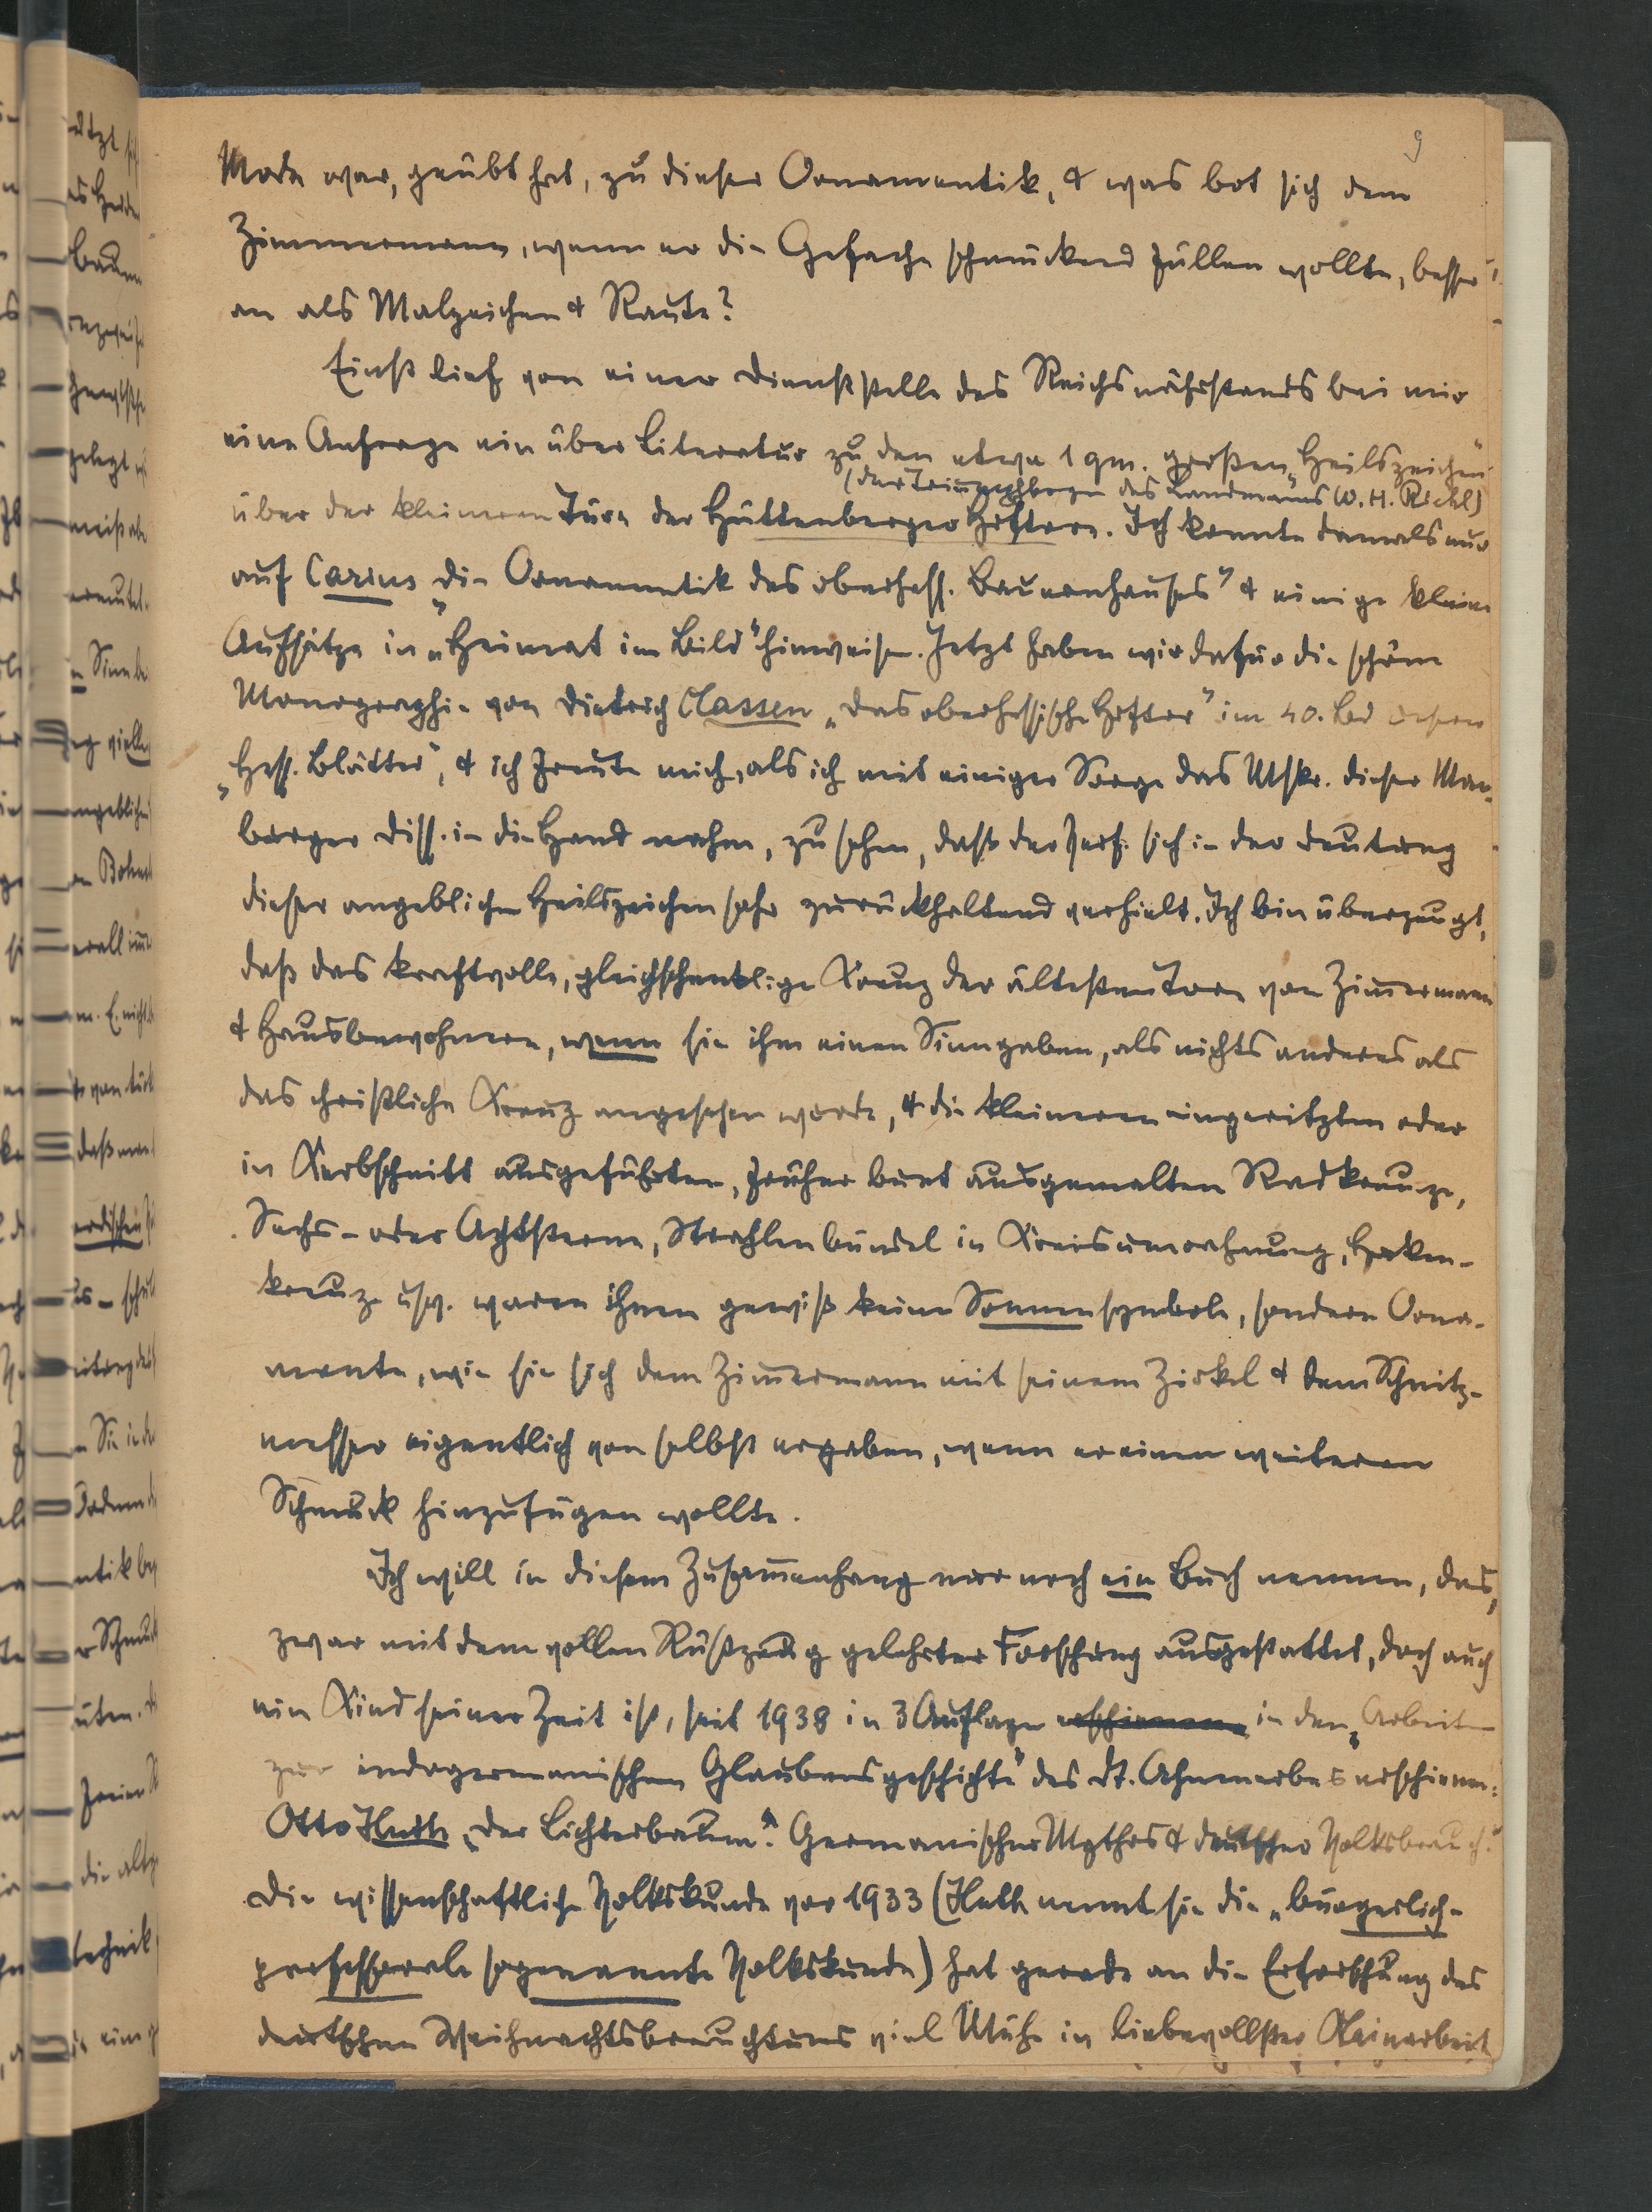 9
Mode war, geübt hat, zu dieser Ornamentik, & was bot sich dem
Zimmermann, wenn er die Gefache schmückend füllen wollte, besser
an als Malzeichen & Raute?
Einst lief von einer Dienststelle des Reichsnährstands bei mir
eine Anfrage ein über Literatur zu den etwa 1 qm. großen „Heilszeichen"
(der Triumphbogen des Landmanns (W. H. Riehl)
über der kleineren Türe der Hüttenberger Hoftore. Ich konnte damals nur
auf Carius „Die Ornamentik des oberhess. Bauernhauses" & einige kleine
Aufsätze in „Heimat im Bild" hinweisen. Jetzt haben wir dafür die schöne
Monographie von Dietrich Classen „Das oberhessische Hoftor" im 40. Bd
„Hess. Blätter", & ich freute mich, als ich mit einiger Sorge das Mskr. dieser Mar-
burger Diss. in die Hand nahm, zu sehen, daß der Verf. sich in der Deutung
dieser angeblichen Heilszeichen sehr zurückhaltend verhielt. Ich bin überzeugt,
daß das kraftvolle, gleichschenklige Kreuz der ältesten Tore von Zimmermann
& Hausbewohnern, wenn sie ihm einen Sinn gaben, als nichts anderes als
das christliche Kreuz angesehen wurde, & die kleineren eingeritzten oder
in Kerbschnitt ausgeführten, früher bunt ausgemalten Radkreuze,
Sechs- oder Achtsterne, Strahlenbündel in Kreisumrahmung, Haken-
kreuze usw. waren ihnen gewiß keine Sonnensymbole, sondern Orna-
mente, wie sie sich dem Zimmermann mit seinem Zirkel & dem Schnitz-
messer eigentlich von selbst ergaben, wenn er einen weiteren
Schmuck hinzufügen wollte.
Ich will in diesem Zusammenhang nur noch ein Buch nennen, das,
zwar mit dem vollen Rüstzeug gelehrter Forschung ausgestattet, doch auch
ein Kind seiner Zeit ist, seit 1938 in 3 Auflagen erschienen in den „Arbeiten
zur indogermanischen Glaubensgeschichte" des Dt. Ahnenerbes erschienen:
Otto Huth „Der Lichterbaum". Germanischer Mythos & deutscher Volksbrauch."
Die wissenschaftliche Volkskunde vor 1933 (Huth nennt sie die „bürgerlich-
professorale sogenannte Volkskunde) hat gerade an die Erforschung des
deutschen Weihnachtsbrauchtums viel Mühe in liebevollster Kleinarbeit